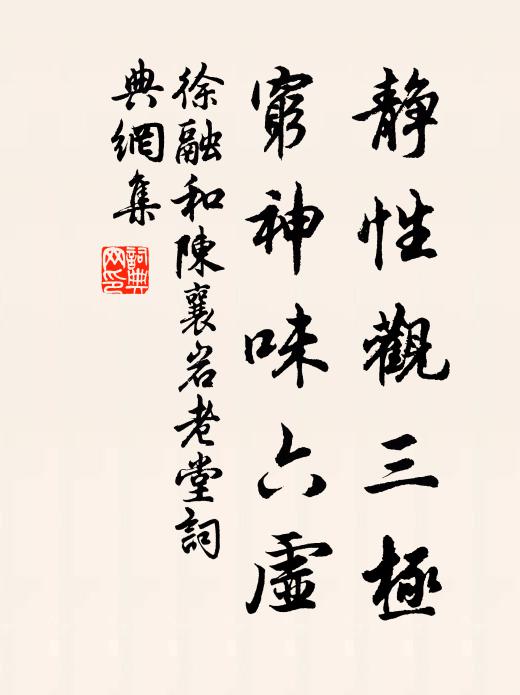 静性觀三極
窮神味六虛
徐融和陳襄岩老堂詞
典網集
詞典
网印